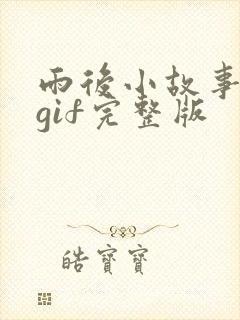 雨後小故事
gif完整版
皓寶寶